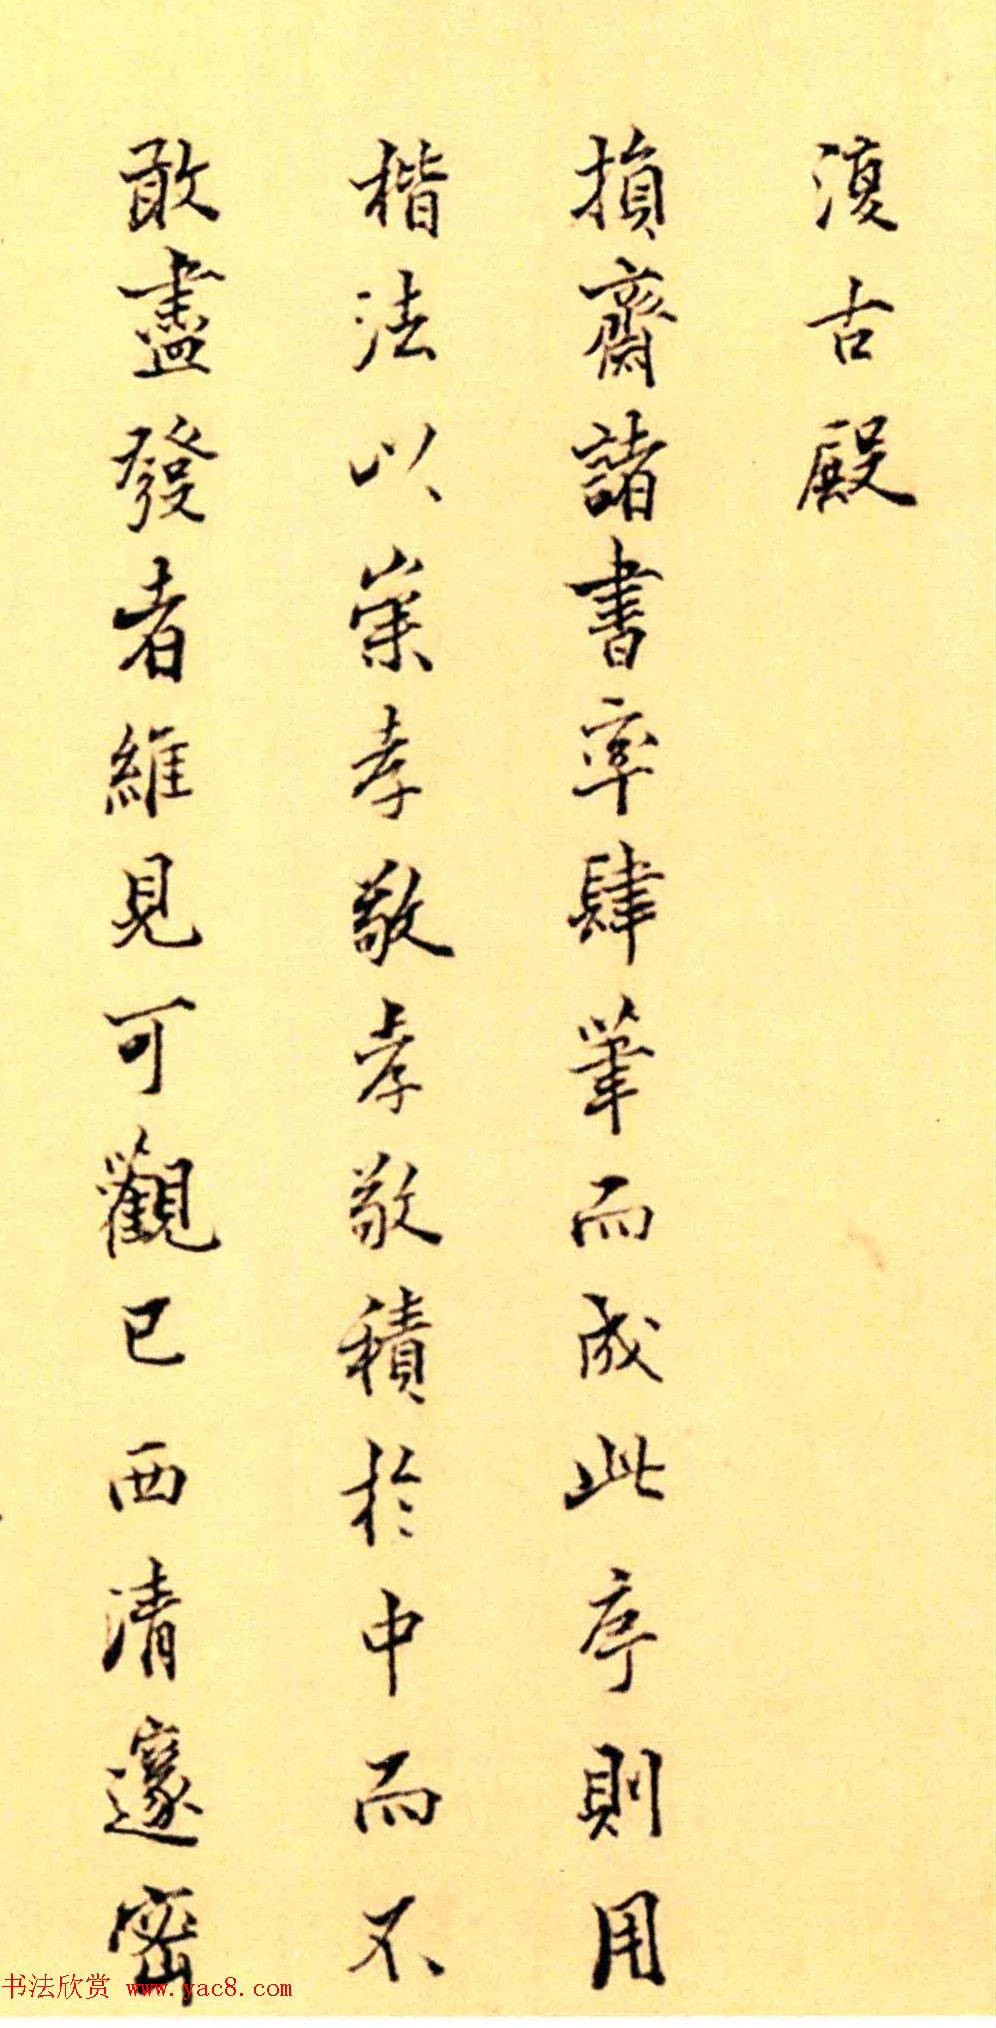 復古殿
損齋諸書率肆筆而成此序則用
楷法以崇孝敬孝敬積於中而不
敢盡發者維見可觀已西清邃密
书法欣赏 www.yac8.com